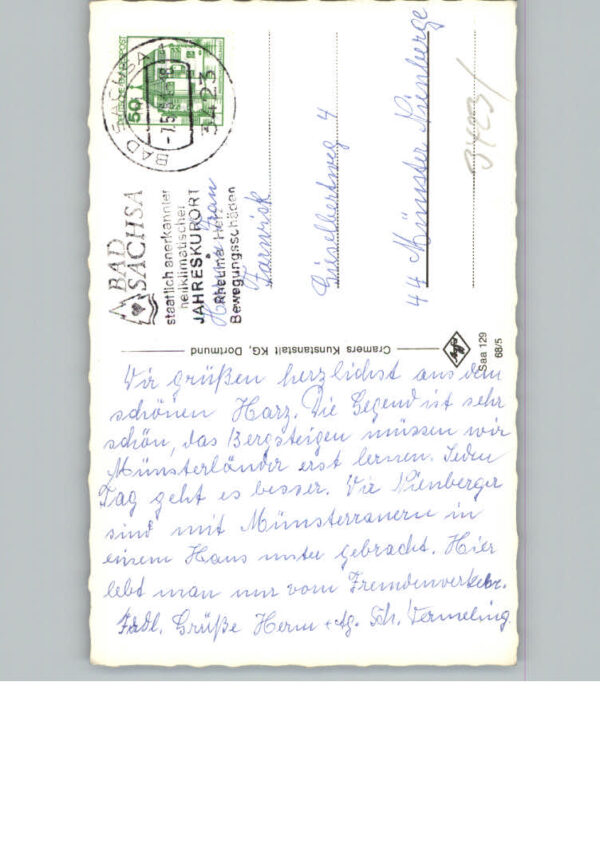 Wir grüßen herzlichst aus dem
schönen Harz. Die Gegend ist sehr
schön, das Bergsteigen müssen wir
Münsterländer erst lernen. Jeden
Tag geht es besser. Vir Nienberger
sind mit Münsteranern in
einem Haus unter gebracht. Hier
lebt man nur vom Fremdenverkehr.
Frdl. Grüße Herm + Ag. Sch. Vermeling.
Cramers Kunstanstalt KG, Dortmund
Saa 129
68/5
BAD
SACHSA
staatlich anerkannter
heilklimatischer
JAHRESKURORT
Rheuma Herz
Bewegungsschäden
BAD SACHSA 1
3423
DEUTSCHE BUNDESPOST
50
Frau
Farwick
Giselbertweg 4
44 Münster Nienberge
3423/